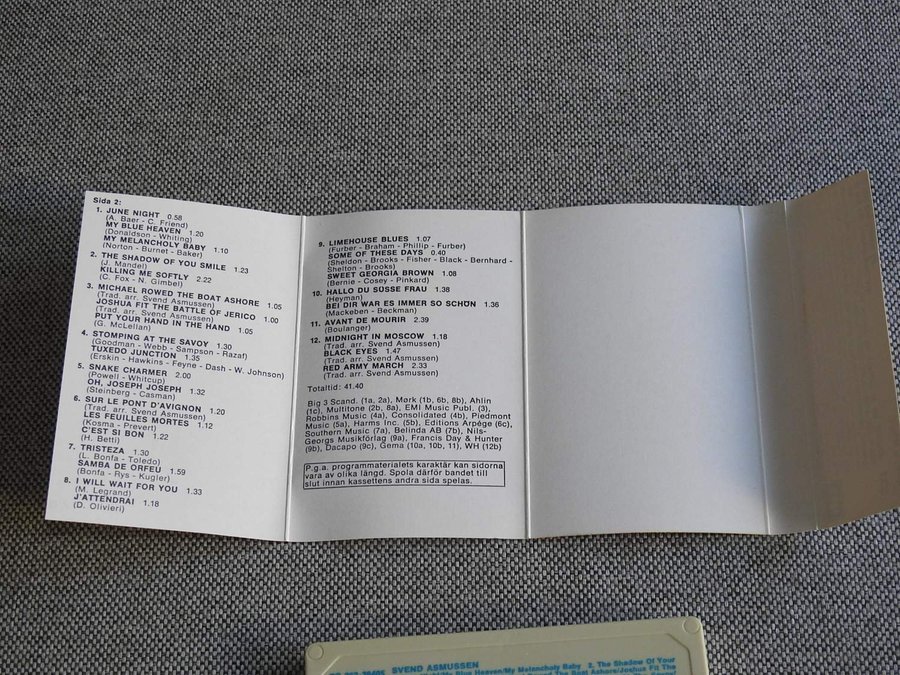 Sida 2:
1. JUNE NIGHT 0.58
(A. Baer - C. Friend)
MY BLUE HEAVEN 1.20
(Donaldson - Whiting)
MY MELANCHOLY BABY 1.10
(Norton - Burnet - Baker)
2. THE SHADOW OF YOU SMILE 1.23
(J. Mandel)
KILLING ME SOFTLY 2.22
(C. Fox - N. Gimbel)
3. MICHAEL ROWED THE BOAT ASHORE 1.05
(Trad. arr. Svend Asmussen)
JOSHUA FIT THE BATTLE OF JERICO 1.00
(Trad. arr. Svend Asmussen)
PUT YOUR HAND IN THE HAND 1.05
(G. McLellan)
4. STOMPING AT THE SAVOY 1.30
(Goodman - Webb - Sampson - Razaf)
TUXEDO JUNCTION 1.35
(Erskin - Hawkins - Feyne - Dash - W. Johnson)
5. SNAKE CHARMER 2.00
(Powell - Whitcup)
OH, JOSEPH JOSEPH 1.32
(Steinberg - Casman)
6. SUR LE PONT D'AVIGNON 1.20
(Trad. arr. Svend Asmussen)
LES FEUILLES MORTES 1.12
(Kosma - Prevert)
C'EST SI BON 1.22
(H. Betti)
7. TRISTEZA 1.30
(L. Bonfa - Toledo)
SAMBA DE ORFEU 1.59
(Bonfa - Rys - Kugler)
8. I WILL WAIT FOR YOU 1.33
(M. Legrand)
J'ATTENDRAI 1.18
(D. Olivieri)
9. LIMEHOUSE BLUES 1.07
(Furber - Braham - Phillip - Furber)
SOME OF THESE DAYS 0.40
(Sheldon - Brooks - Fisher - Black - Bernhard -
Shelton - Brooks)
SWEET GEORGIA BROWN 1.08
(Bernie - Cosey - Pinkard)
10. HALLO DU SÜSSE FRAU 1.38
(Heyman)
BEI DIR WAR ES IMMER SO SCHÖN 1.36
(Mackeben - Beckman)
11. AVANT DE MOURIR 2.39
(Boulanger)
12. MIDNIGHT IN MOSCOW 1.18
(Trad. arr. Svend Asmussen)
BLACK EYES 1.47
(Trad. arr. Svend Asmussen)
RED ARMY MARCH 2.33
(Trad. arr. Svend Asmussen)
Totaltid: 41.40
Big 3 Scand. (1a, 2a), Mørk (1b, 6b, 8b), Ahlin
(1c), Multitone (2b, 8a), EMI Music Publ. (3),
Robbins Music (4a), Consolidated (4b), Piedmont
Music (5a), Harms Inc. (5b), Editions Arpége (6c),
Southern Music (7a), Belinda AB (7b), Nils-
Georgs Musikförlag (9a), Francis Day & Hunter
(9b), Dacapo (9c), Gema (10a, 10b, 11), WH (12b)
P.g.a. programmaterialets karaktär kan sidorna
vara av olika längd. Spola därför bandet till
slut innan kassettens andra sida spelas.
SVEND ASMUSSEN
My Blue Heaven/My Melancholy Baby 2. The Shadow Of Your
The Boat Ashore/Joshua Fit The